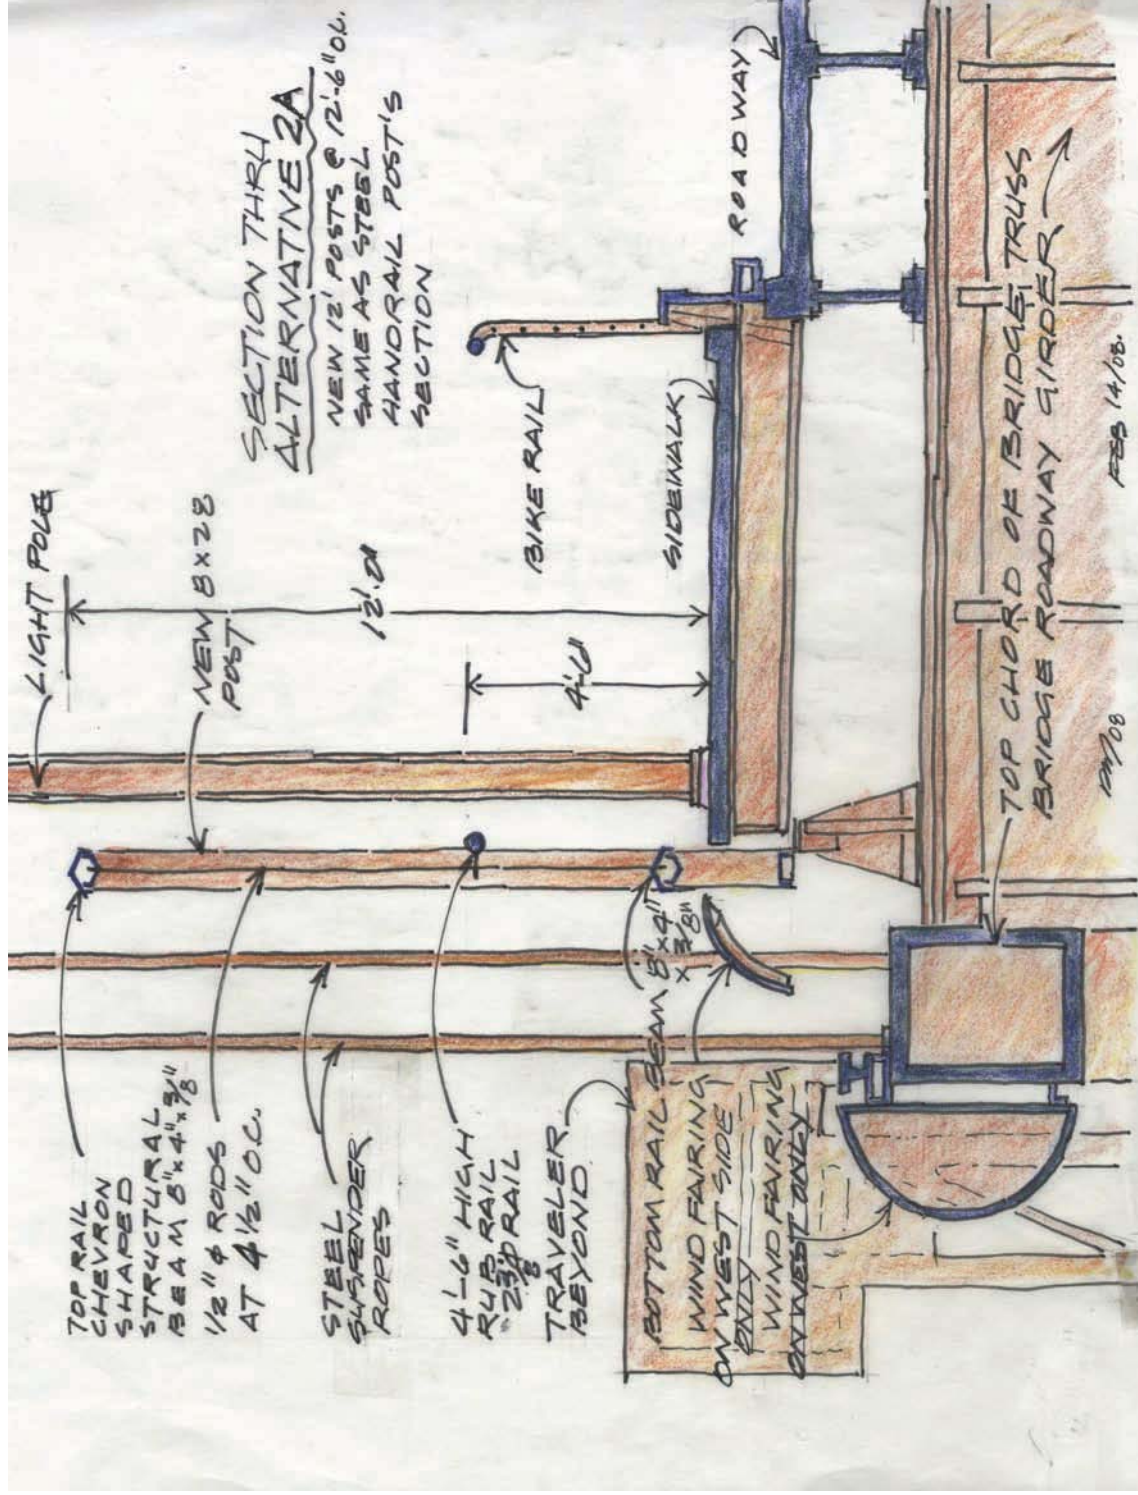 SECTION THRU
ALTERNATIVE 2A
NEW 12' POSTS @ 12'-6" O.C.
SAME AS STEEL
HANDRAIL POST'S
SECTION
LIGHT POLE
NEW 8x28
POST
12'.0"
4'-6"
BIKE RAIL
SIDEWALK
ROADWAY
TOP RAIL
CHEVRON
SHAPED
STRUCTURAL
BEAM 8"x4"x3/8"
1/2" φ RODS
AT 4 1/2" O.C.
STEEL
SUSPENDER
ROPES
4'-6" HIGH
RUB RAIL
RAIL
TRAVELER
BEYOND
BOTTOM RAIL BEAM 8"x4"
x 3/8"
WIND FAIRING
ON WEST SIDE
ONLY
WIND FAIRING
ON WEST ONLY
TOP CHORD OF BRIDGE TRUSS
BRIDGE ROADWAY GIRDER
FEB 14/08.